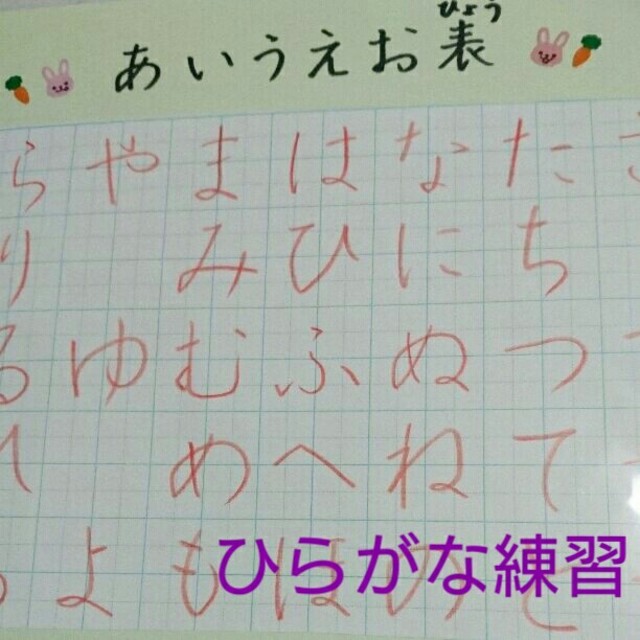 ひょう
あいうえお表
たちつてと
なにぬねの
はひふへほ
まみむめも
やゆよ
らり
ひらがな練習